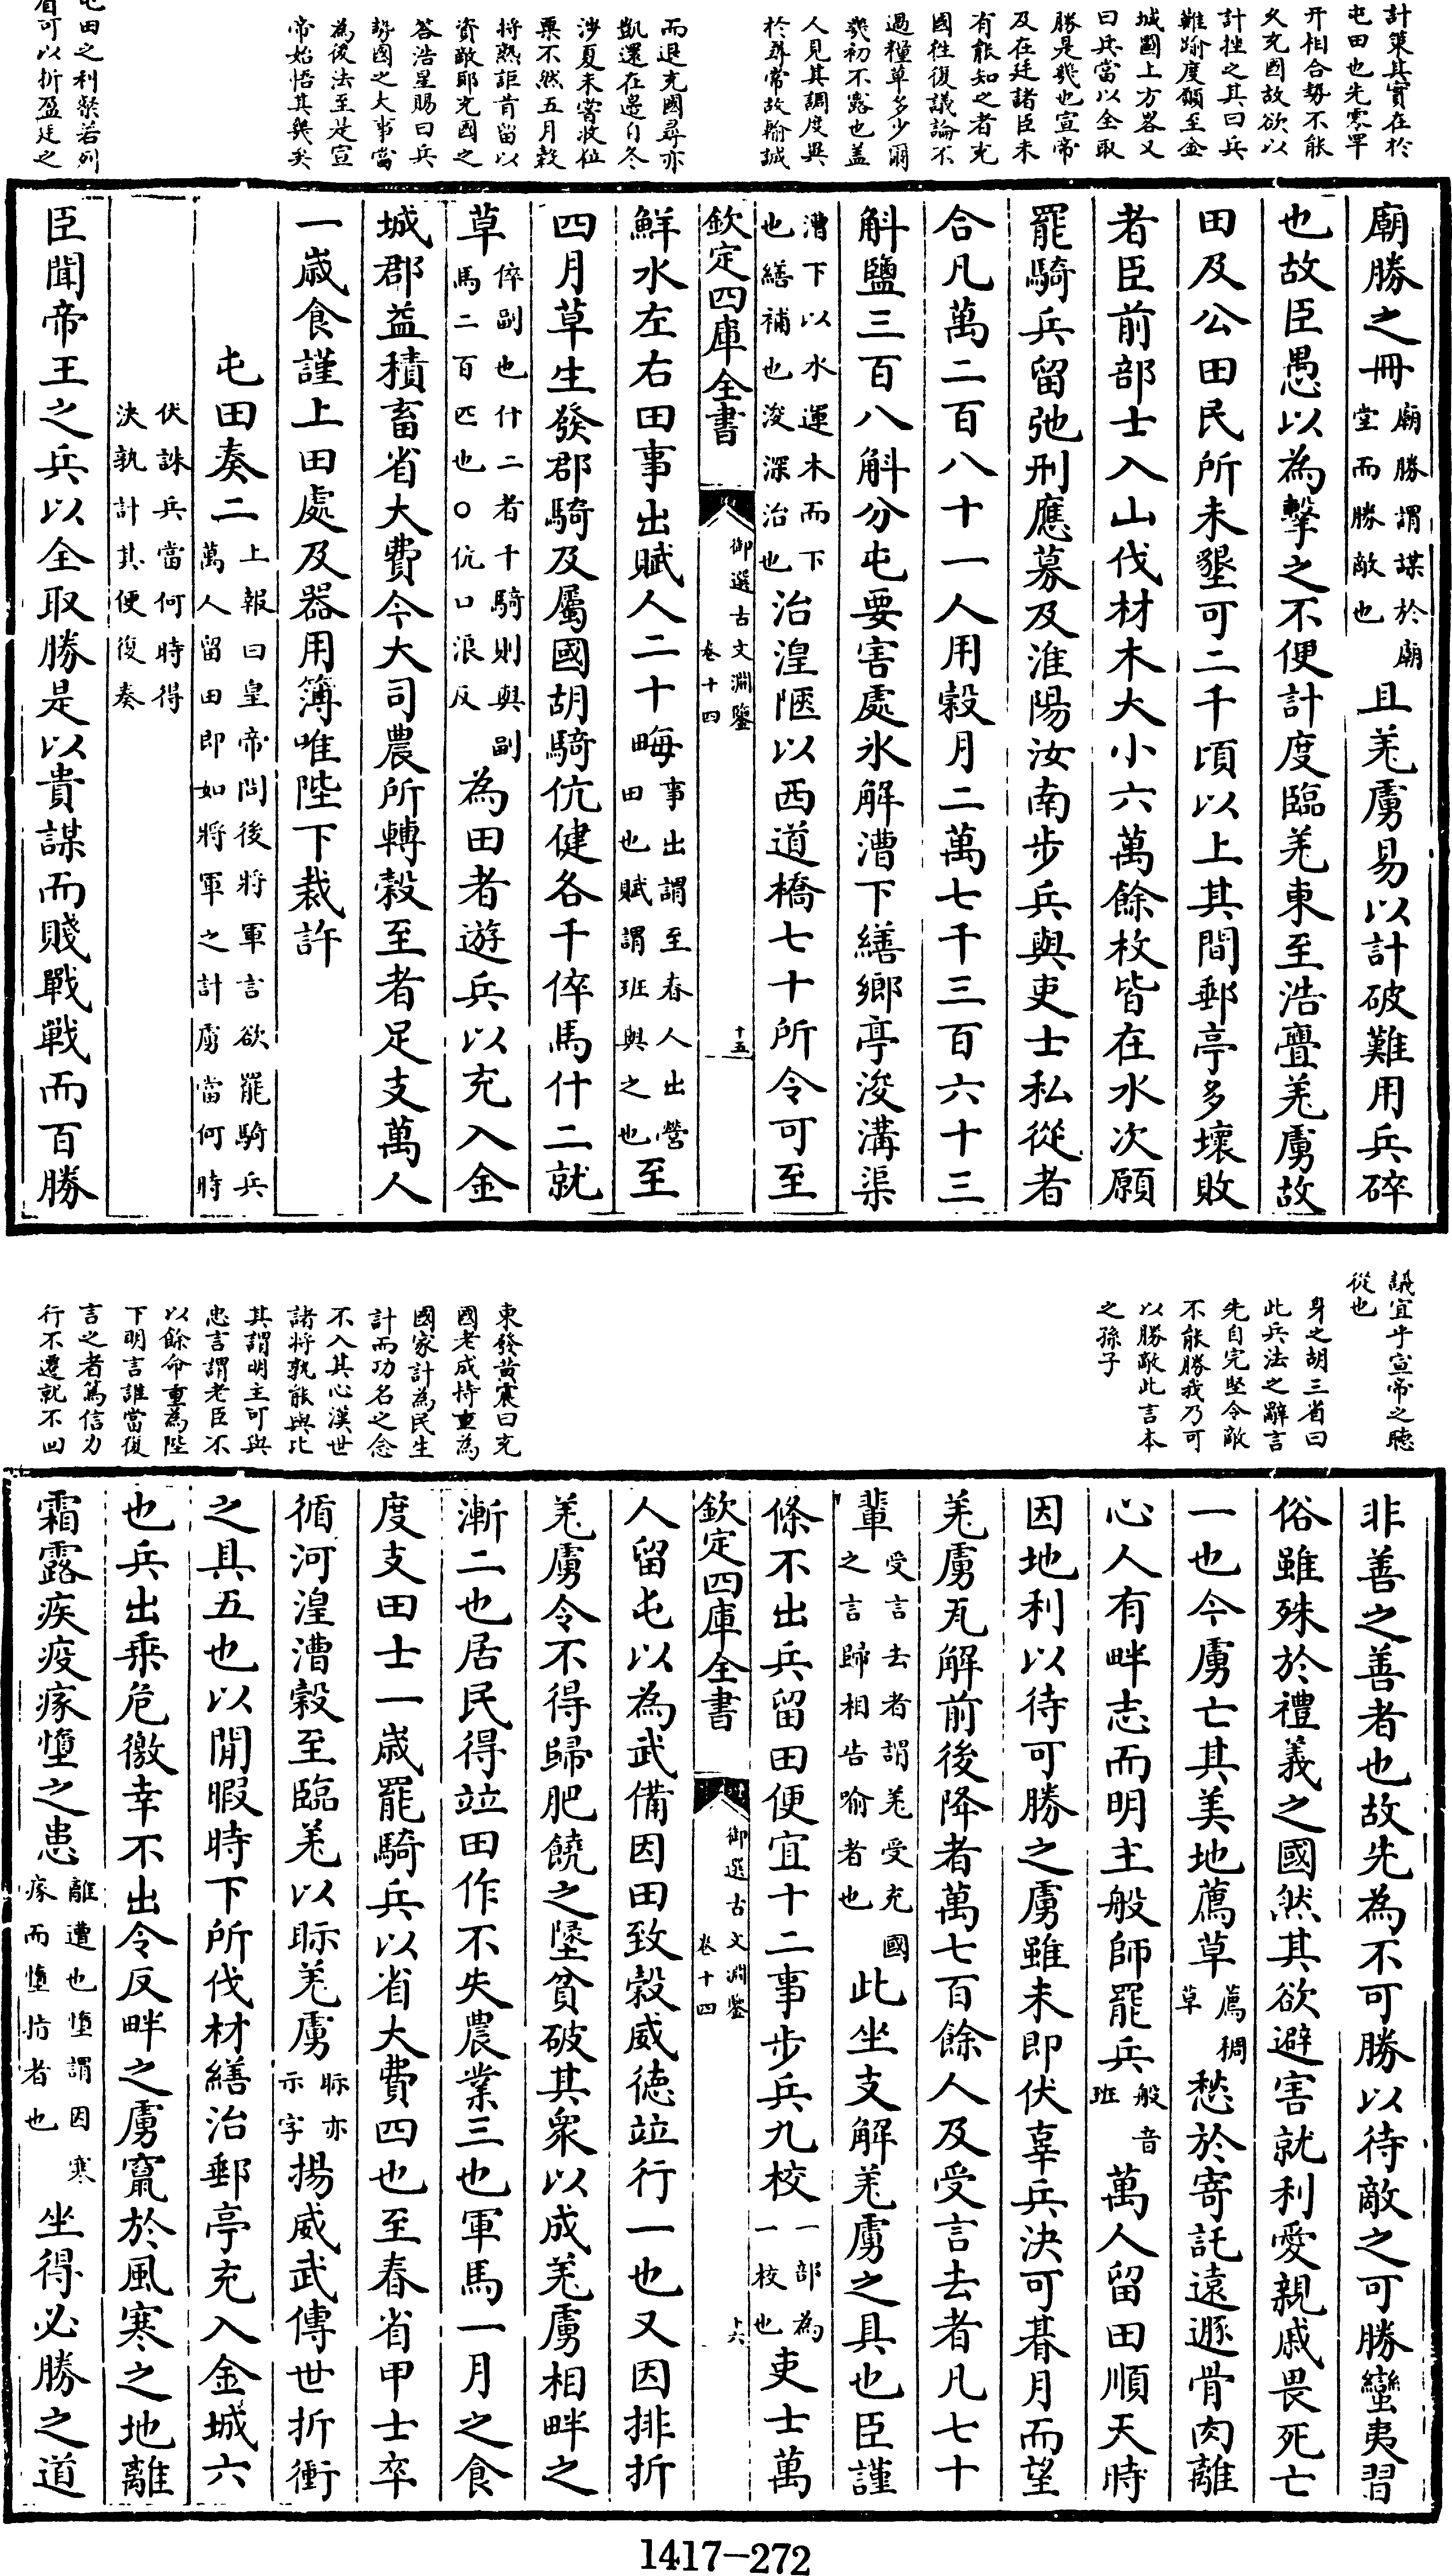 計策其實在於
屯田也先零罕
幵相合勢不能
久充國故欲以
計挫之其曰兵
難踰度願至金
城圖上方畧又
曰兵當以全取
勝是幾也宣帝
及在廷諸臣未
有能知之者充
國徃復議論不
過糧草多少爾
幾初不露也葢
人見其調度異
於尋常故輸誠
而退充國尋亦
凱還在邊自冬
涉夏未嘗收位
粟不然五月穀
將熟詎肯留以
資敵耶充國之
答浩星賜曰兵
勢國之大事當
為後法至是宣
帝始悟其幾矣
屯田之利粲若列
眉可以折盈廷之
廟勝之冊廟勝謂謀於廟堂而勝敵也且羌虜易以計破難用兵碎
也故臣愚以為擊之不便計度臨羌東至浩亹羌虜故
田及公田民所未墾可二千頃以上其間郵亭多壞敗
者臣前部士入山伐材木大小六萬餘枚皆在水次願
罷騎兵留弛刑應募及淮陽汝南步兵與吏士私從者
合凡萬二百八十一人用穀月二萬七千三百六十三
斛鹽三百八斛分屯要害處氷解漕下繕鄉亭浚溝渠
漕下以水運木而下也繕補也浚深治也治湟陿以西道橋七十所令可至
欽定四庫全書 御選古文淵鑒 卷十四 十五
鮮水左右田事出賦人二十畮事出謂至春人出營田也賦謂班與之也至
四月草生發郡騎及屬國胡騎伉健各千倅馬什二就
草倅副也什二者千騎則與副馬二百匹也○伉口浪反為田者遊兵以充入金
城郡益積畜省大費今大司農所轉穀至者足支萬人
一歲食謹上田處及器用簿唯陛下裁許
屯田奏二上報曰皇帝問後將軍言欲罷騎兵萬人留田即如將軍之計虜當何時
伏誅兵當何時得決孰計其便復奏
臣聞帝王之兵以全取勝是以貴謀而賤戰戰而百勝
議宜乎宣帝之聽
從也
身之胡三省曰
此兵法之辭言
先自完堅令敵
不能勝我乃可
以勝敵此言本
之孫子
東發黃震曰充
國老成持重為
國家計為民生
計而功名之念
不入其心漢世
諸將孰能與比
其謂明主可與
忠言謂老臣不
以餘命重為陛
下明言誰當復
言之者篤信力
行不遷就不回
非善之善者也故先為不可勝以待敵之可勝蠻夷習
俗雖殊於禮義之國然其欲避害就利愛親戚畏死亡
一也今虜亡其美地薦草薦稠草愁於寄託遠遯骨肉離
心人有畔志而明主般師罷兵般音班萬人留田順天時
因地利以待可勝之虜雖未即伏辜兵決可朞月而望
羌虜瓦解前後降者萬七百餘人及受言去者凡七十
輩受言去者謂羌受充國之言歸相告喻者也此坐支解羌虜之具也臣謹
條不出兵留田便宜十二事步兵九校一部為一校也吏士萬
欽定四庫全書 御選古文淵鑒 卷十四 十六
人留屯以為武備因田致穀威德竝行一也又因排折
羌虜令不得歸肥饒之墬貧破其衆以成羌虜相畔之
漸二也居民得竝田作不失農業三也軍馬一月之食
度支田士一歲罷騎兵以省大費四也至春省甲士卒
循河湟漕穀至臨羌以眎羌虜眎亦示字揚威武傳世折衝
之具五也以閒暇時下所伐材繕治郵亭充入金城六
也兵出乘危徼幸不出令反畔之虜竄於風寒之地離
霜露疾疫瘃墮之患離遭也墮謂因寒瘃而墮指者也坐得必勝之道
1417—272